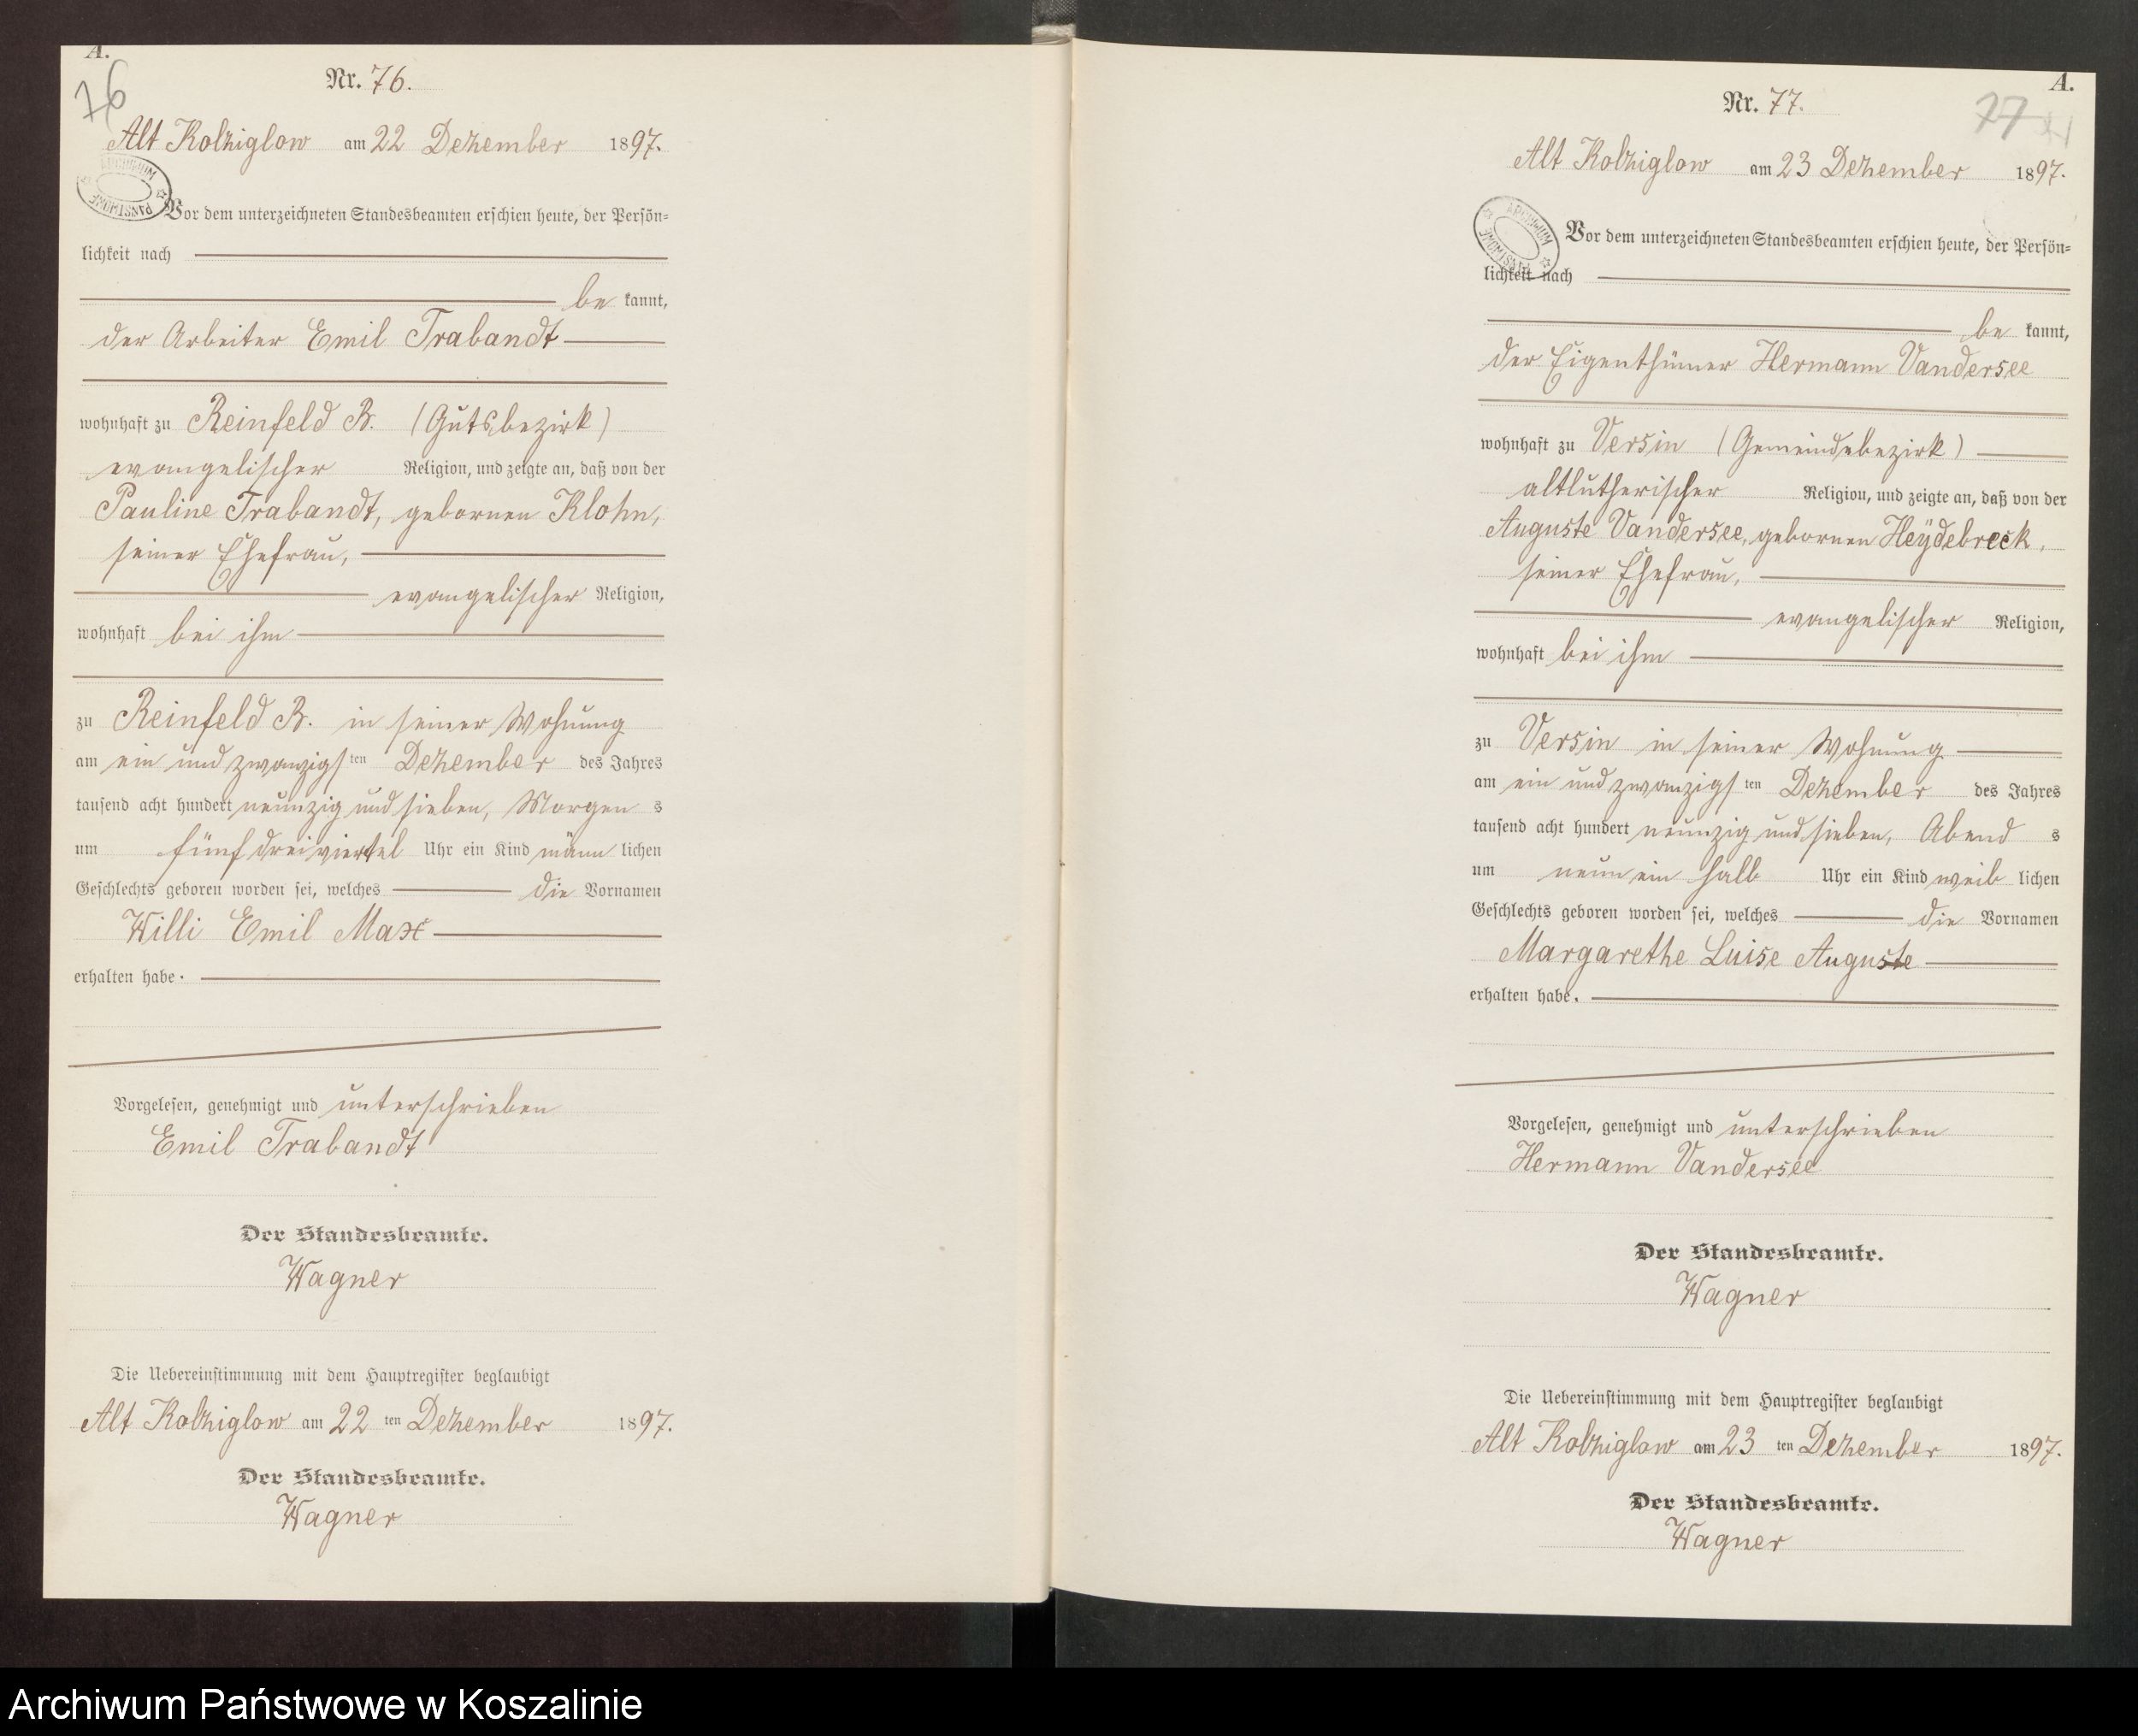 A.
76
Nr. 76.
Alt Kolziglow am 22 Dezember 1897.
ARCHIWUM PAŃSTWOWE
Vor dem unterzeichneten Standesbeamten erschien heute, der Persön-
lichkeit nach
be kannt,
der Arbeiter Emil Trabandt
wohnhaft zu Reinfeld B. (Gutsbezirk)
evangelischer Religion, und zeigte an, daß von der
Pauline Trabandt, gebornen Klohn,
seiner Ehefrau,
evangelischer Religion,
wohnhaft bei ihm
zu Reinfeld B. in seiner Wohnung
am ein und zwanzigsten Dezember des Jahres
tausend acht hundert neunzig und sieben, Morgens
um fünf dreiviertel Uhr ein Kind männlichen
Geschlechts geboren worden sei, welches die Vornamen
Willi Emil Max
erhalten habe.
Vorgelesen, genehmigt und unterschrieben
Emil Trabandt
Der Standesbeamte.
Wagner
Die Uebereinstimmung mit dem Hauptregister beglaubigt
Alt Kolziglow am 22 ten Dezember 1897.
Der Standesbeamte.
Wagner
A.
77
Nr. 77.
Alt Kolziglow am 23 Dezember 1897.
ARCHIWUM PAŃSTWOWE
Vor dem unterzeichneten Standesbeamten erschien heute, der Persön-
lichkeit nach
be kannt,
der Eigenthümer Hermann Vandersee
wohnhaft zu Versin (Gemeindebezirk)
altlutherischer Religion, und zeigte an, daß von der
Auguste Vandersee, gebornen Heydebreck,
seiner Ehefrau,
evangelischer Religion,
wohnhaft bei ihm
zu Versin in seiner Wohnung
am ein und zwanzigsten Dezember des Jahres
tausend acht hundert neunzig und sieben, Abends
um neun ein halb Uhr ein Kind weiblichen
Geschlechts geboren worden sei, welches die Vornamen
Margarethe Luise Auguste
erhalten habe.
Vorgelesen, genehmigt und unterschrieben
Hermann Vandersee
Der Standesbeamte.
Wagner
Die Uebereinstimmung mit dem Hauptregister beglaubigt
Alt Kolziglow am 23 ten Dezember 1897.
Der Standesbeamte.
Wagner
Archiwum Państwowe w Koszalinie